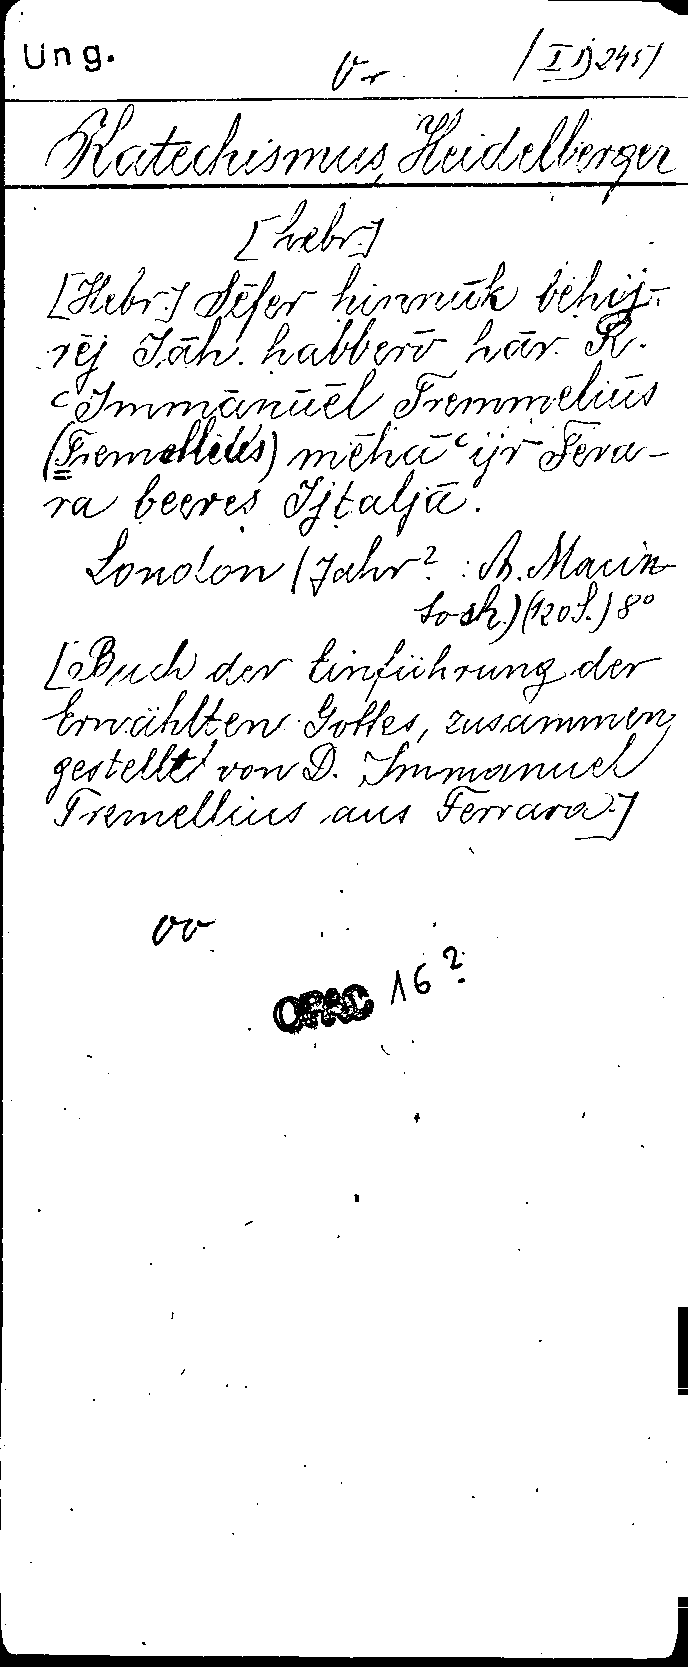 Ung.
(I 1) 245)
Katechismus, Heidelberger
[hebr.]
[Hebr.] Sēfer hinnūk bĕhij-
rēj Jāh. habbērō hār. R.
ʿImmānūēl Tremmelius
(Tremellius) mēhāʿijr Fera-
ra beeres Ijtaljā.
London (Jahr? : A. Macin-
tosh.) (120 S.) 8°
[Buch der Einführung der
Erwählten Gottes, zusammen
gestellt von D. Immanuel
Tremellius aus Ferrara.]
OPAC 16?